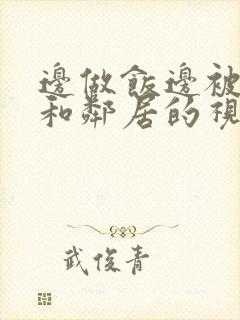 邊做飯邊被
和鄰居的視
武俊青